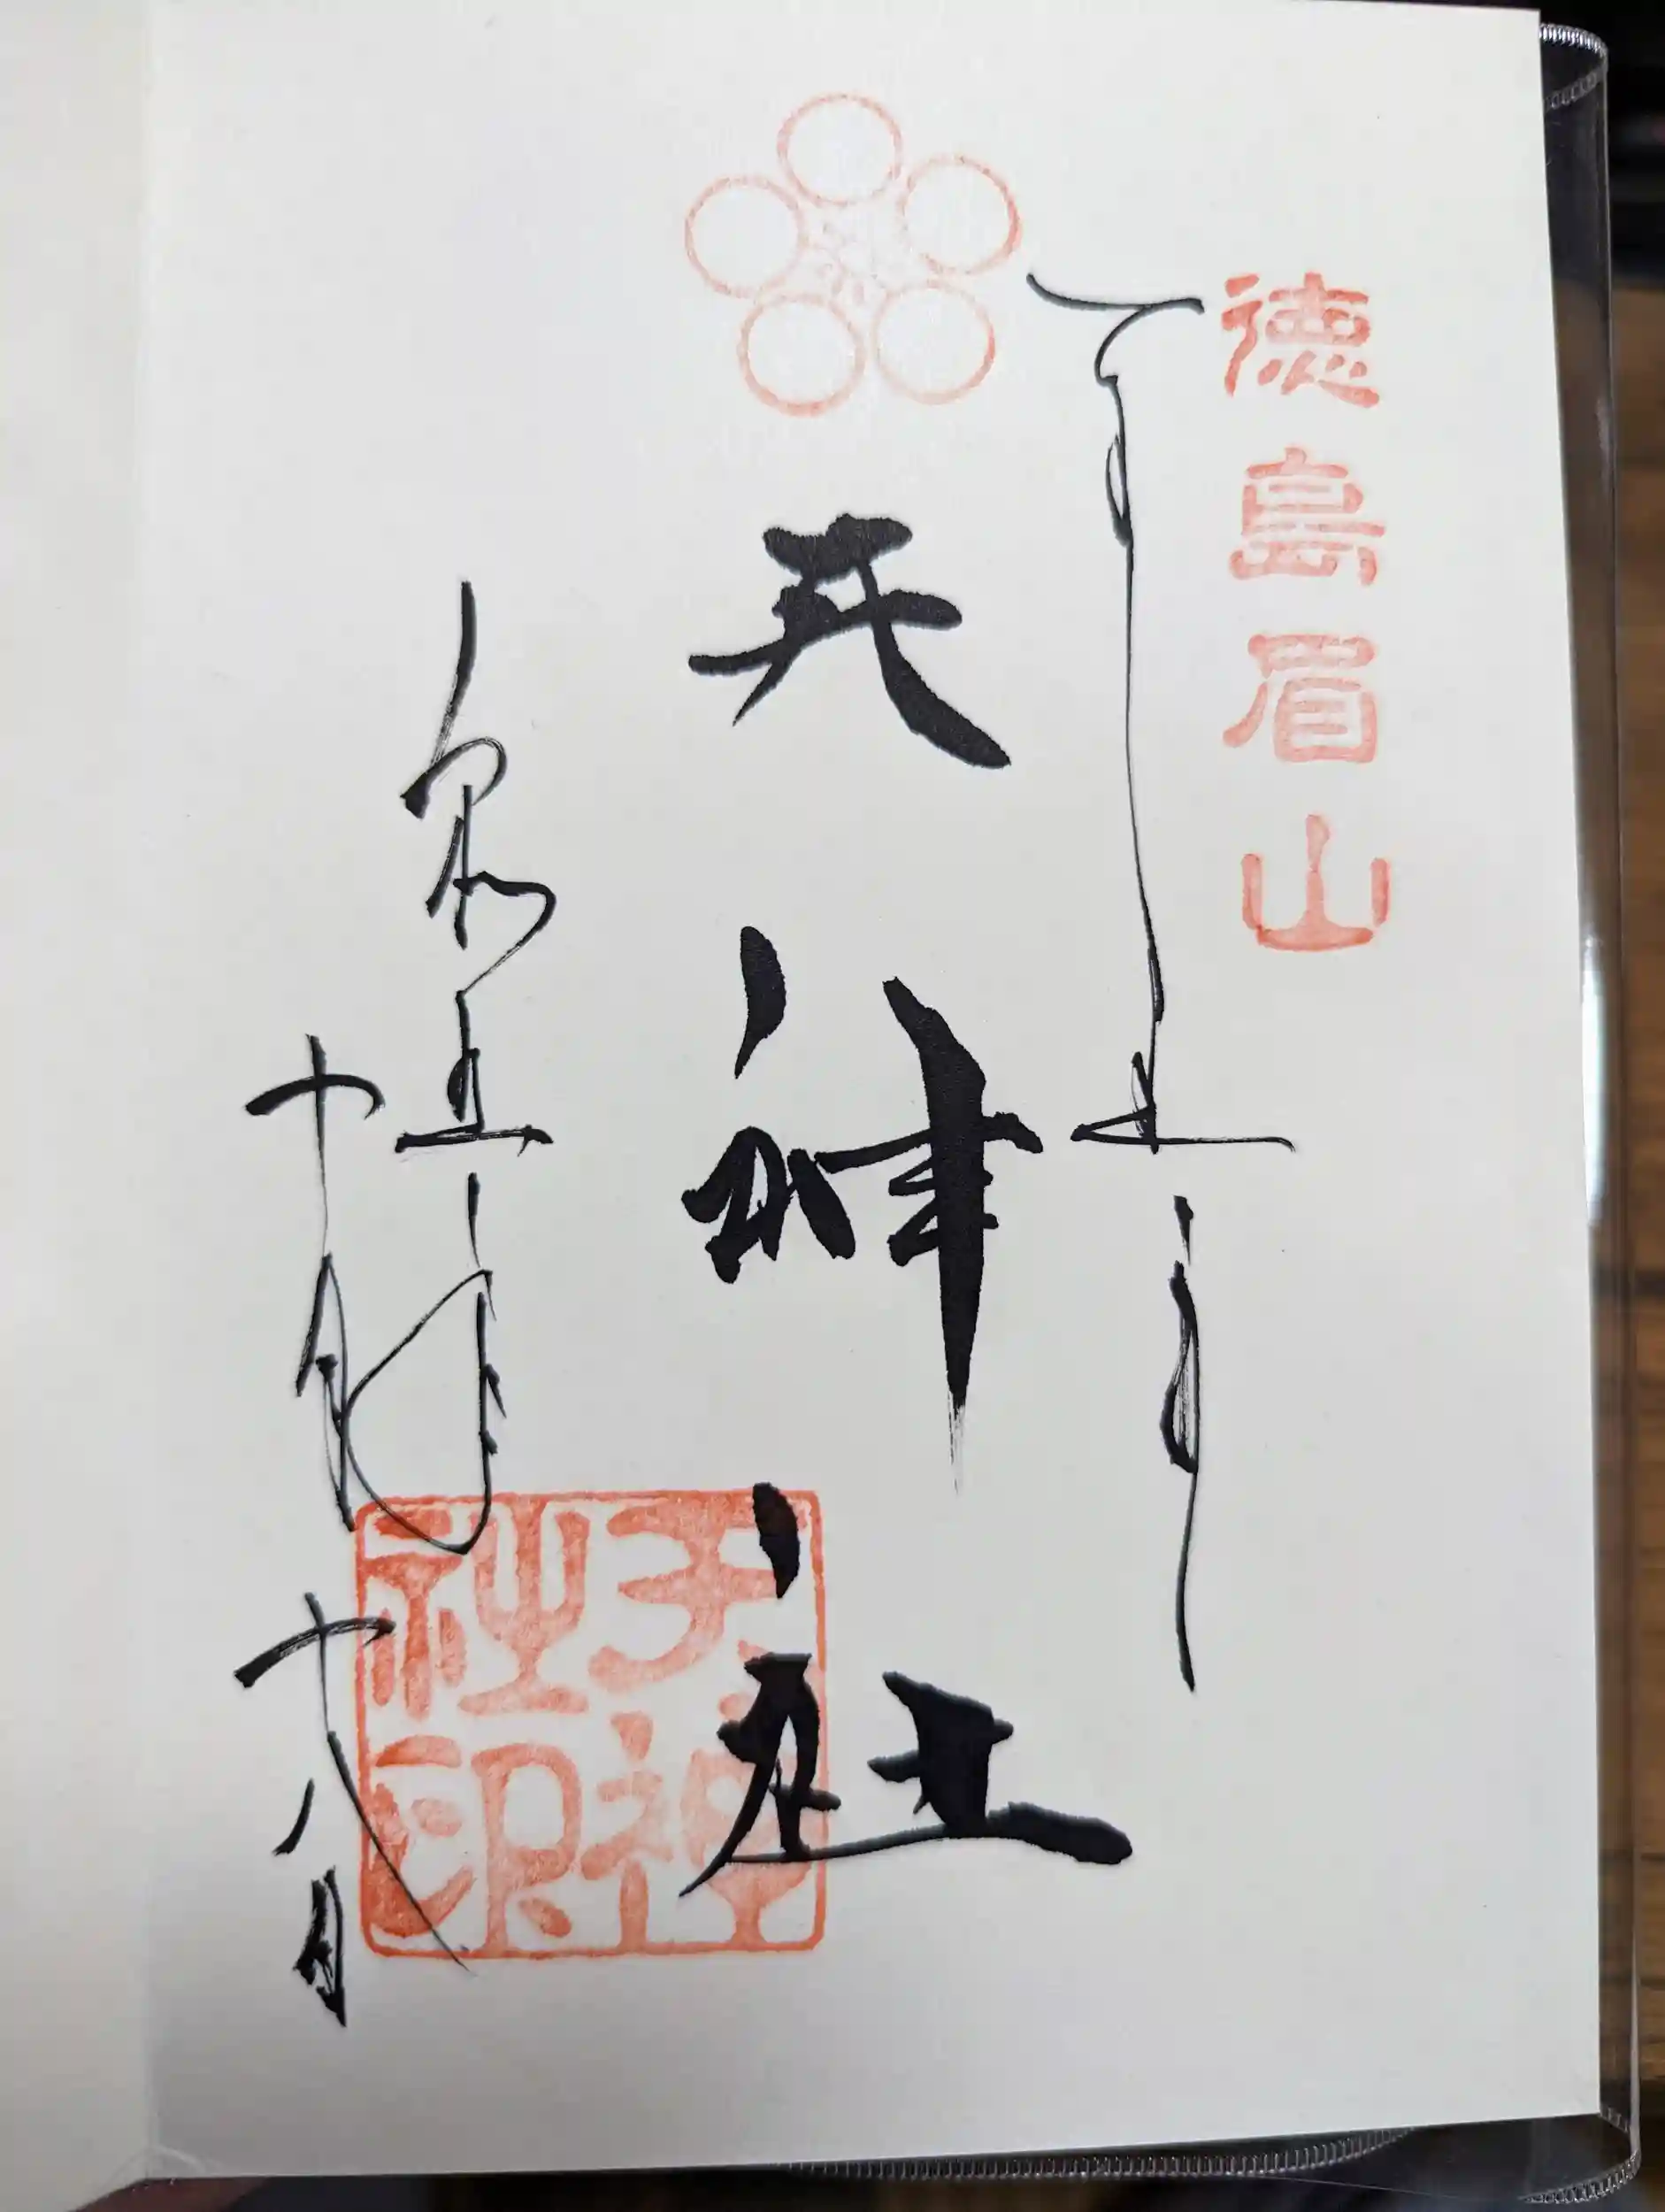 徳島眉山
天神社
天神
社印
令和五年
十月十八日